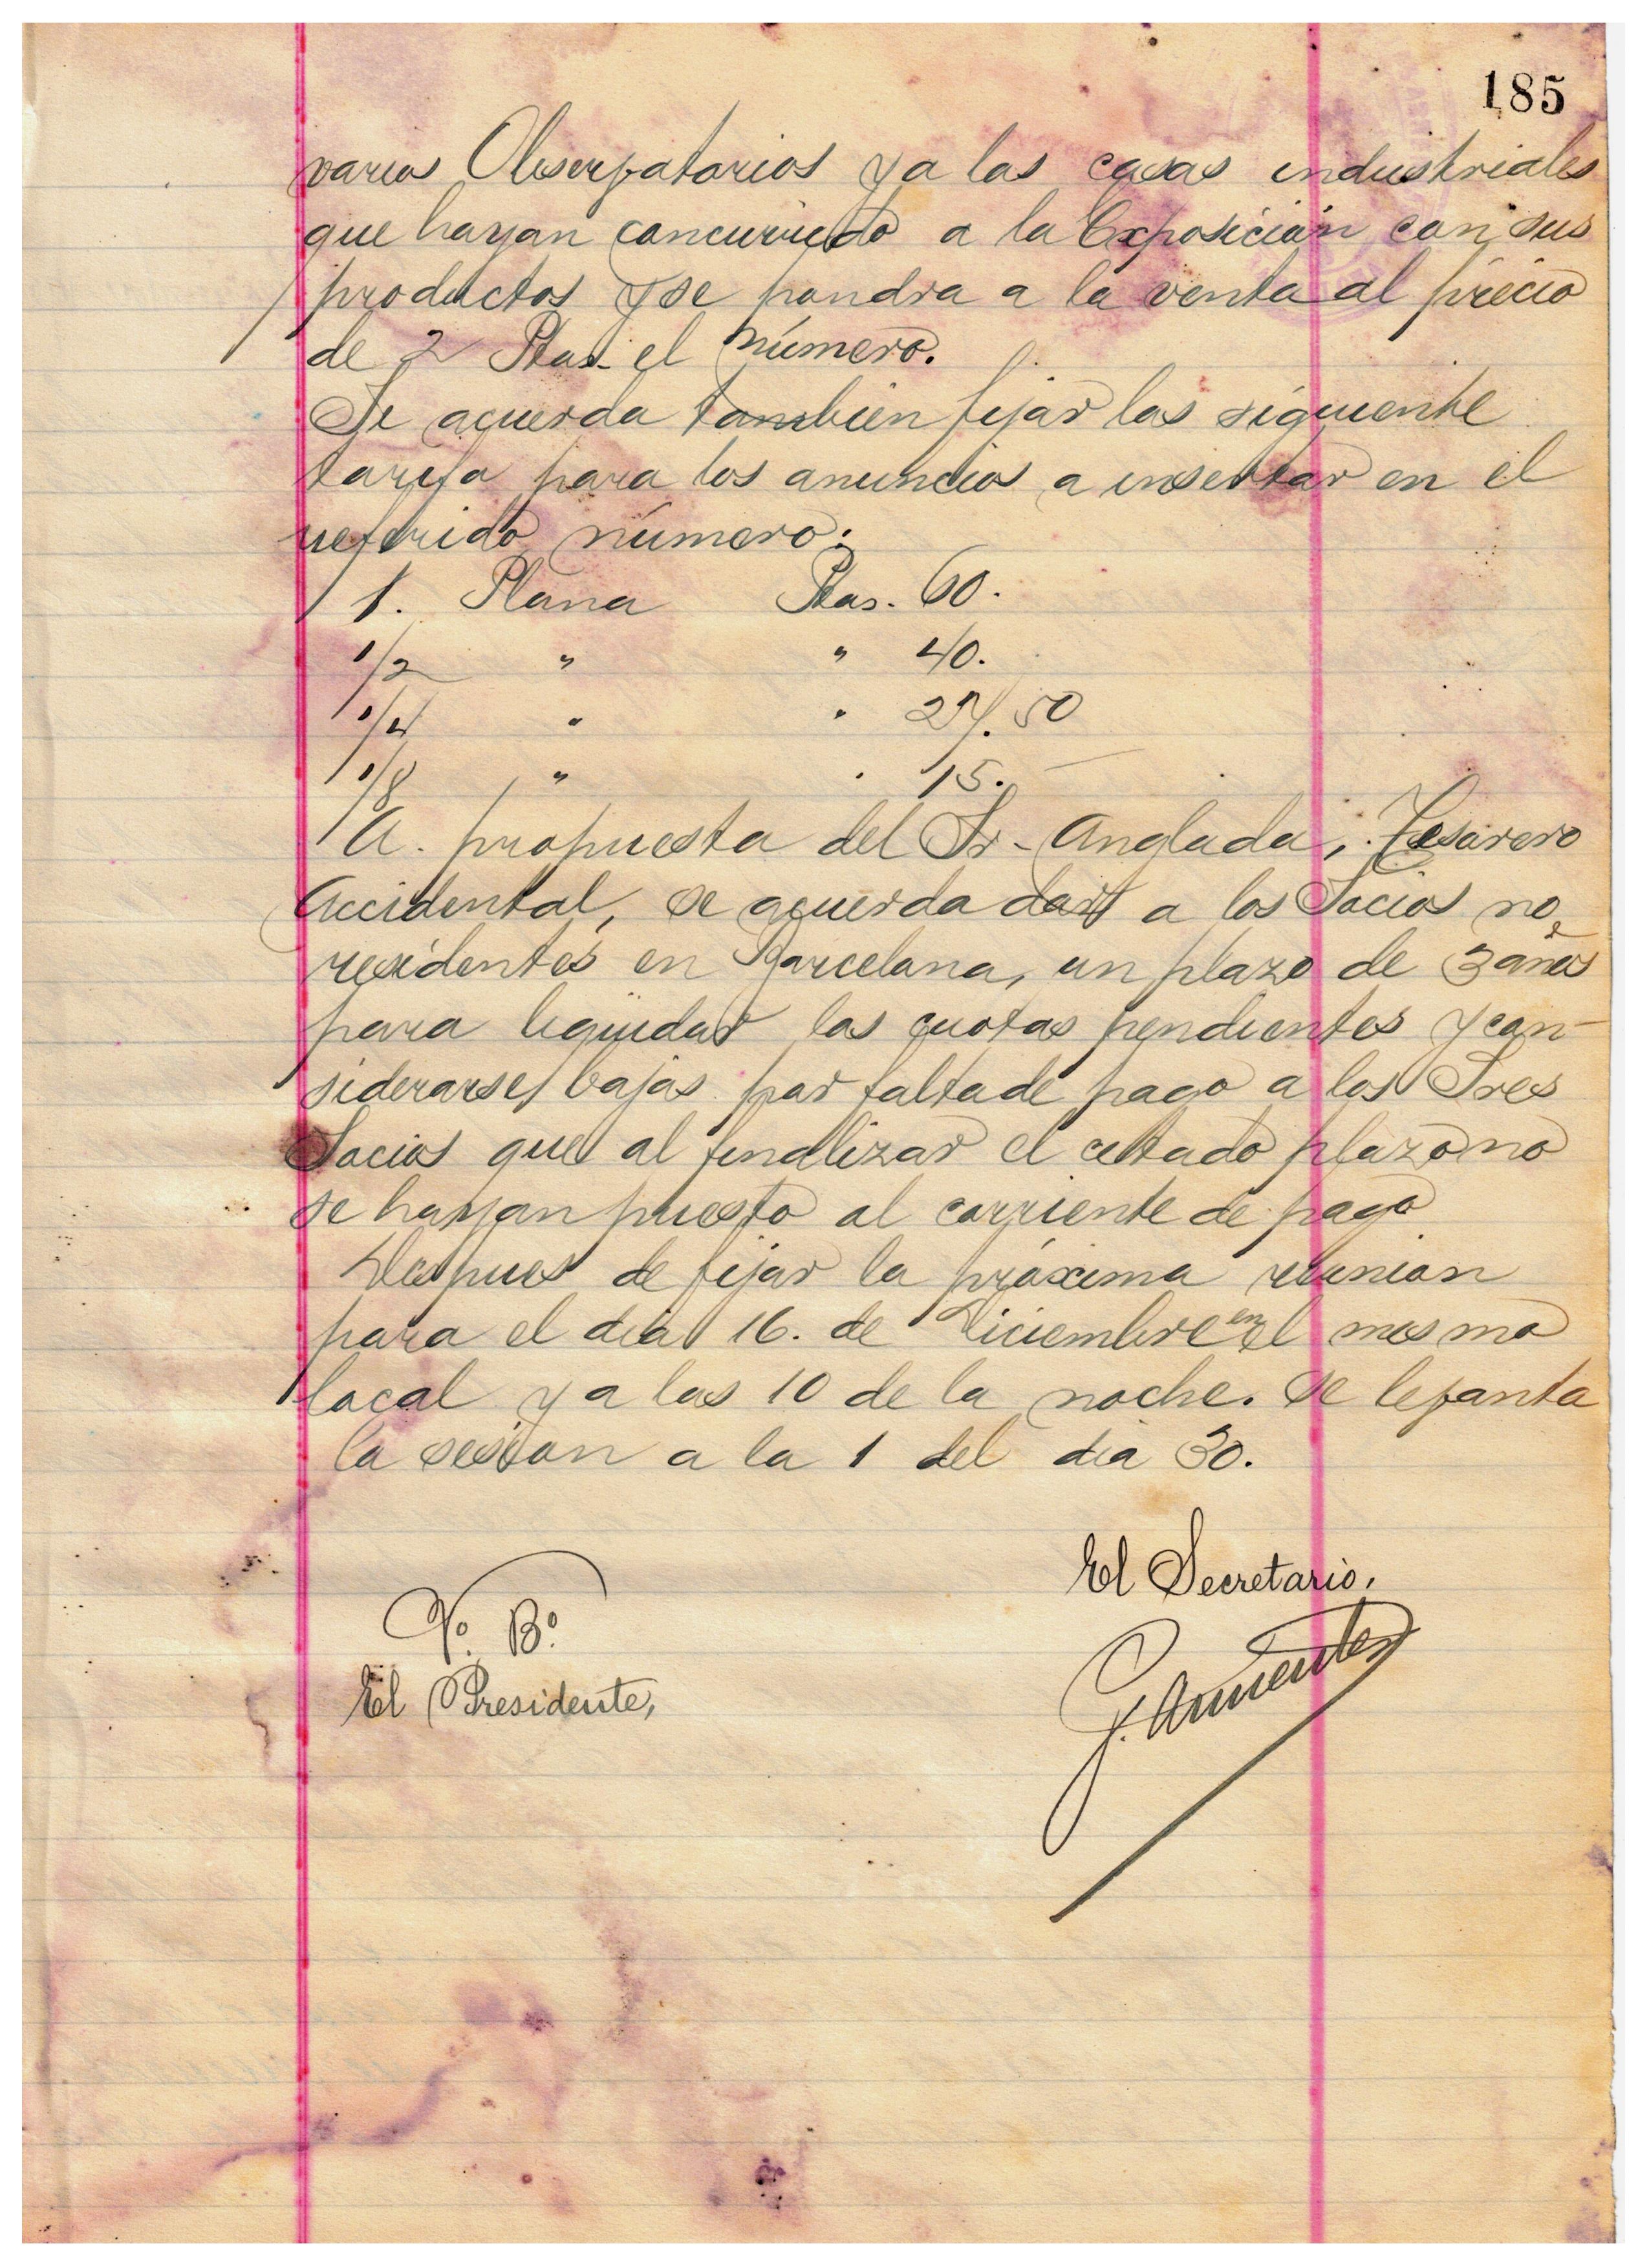 185
varios Observatorios y a las casas industriales
que hayan concurriedo a la Exposición con sus
productos y se pondra a la venta al précio
de 2 Ptas. el número.
Se acuerda tambien fijar las siguiente
tarifa para los anuncios a insertar en el
referido número:
1. Plana Ptas. 60.
1/2 " " 40.
1/4 " " 27.50
1/8 " " 15.
A. propuesta del Sr. Anglada, Tesorero
Accidental, se acuerda dar a los Socios no
residentes en Barcelona, un plazo de 3 años
para liquidar las cuotas pendientes y con-
siderarse bajas por falta de pago a los Sres
Socios que al finalizar el citado plazo no
se hayan puesto al corriente de pago
Despues de fijar la próxima reunion
para el dia 16. de Diciembre en el mismo
local y a las 10 de la noche. se levanta
la sesion a la 1 del dia 30.
El Secretario,
Vº. Bº.
El Presidente,